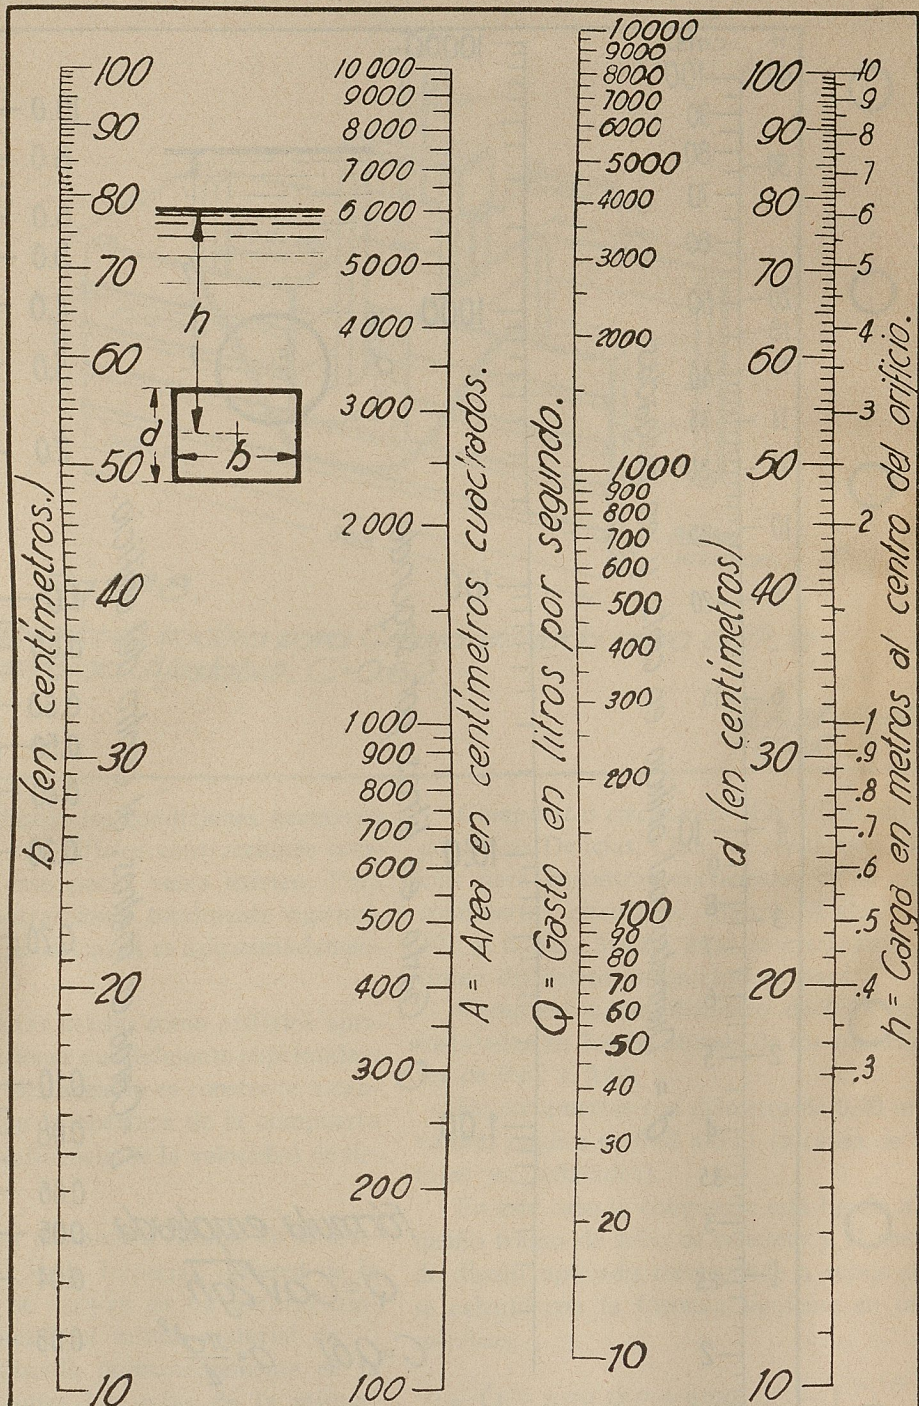 b (en centímetros.)
100
90
80
70
60
50
40
30
20
10
h
d
b
10 000
9000
8000
7000
6 000
5000
4 000
3 000
2 000
1 000
900
800
700
600
500
400
300
200
100
A = Area en centímetros cuadrados.
Q = Gasto en litros por segundo.
10000
9000
8000
7000
6000
5000
4000
3000
2000
1000
900
800
700
600
500
400
300
200
100
90
80
70
60
50
40
30
20
10
d (en centímetros)
100
90
80
70
60
50
40
30
20
10
10
9
8
7
6
5
4
3
2
1
.9
.8
.7
.6
.5
.4
.3
h = Carga en metros al centro del orificio.